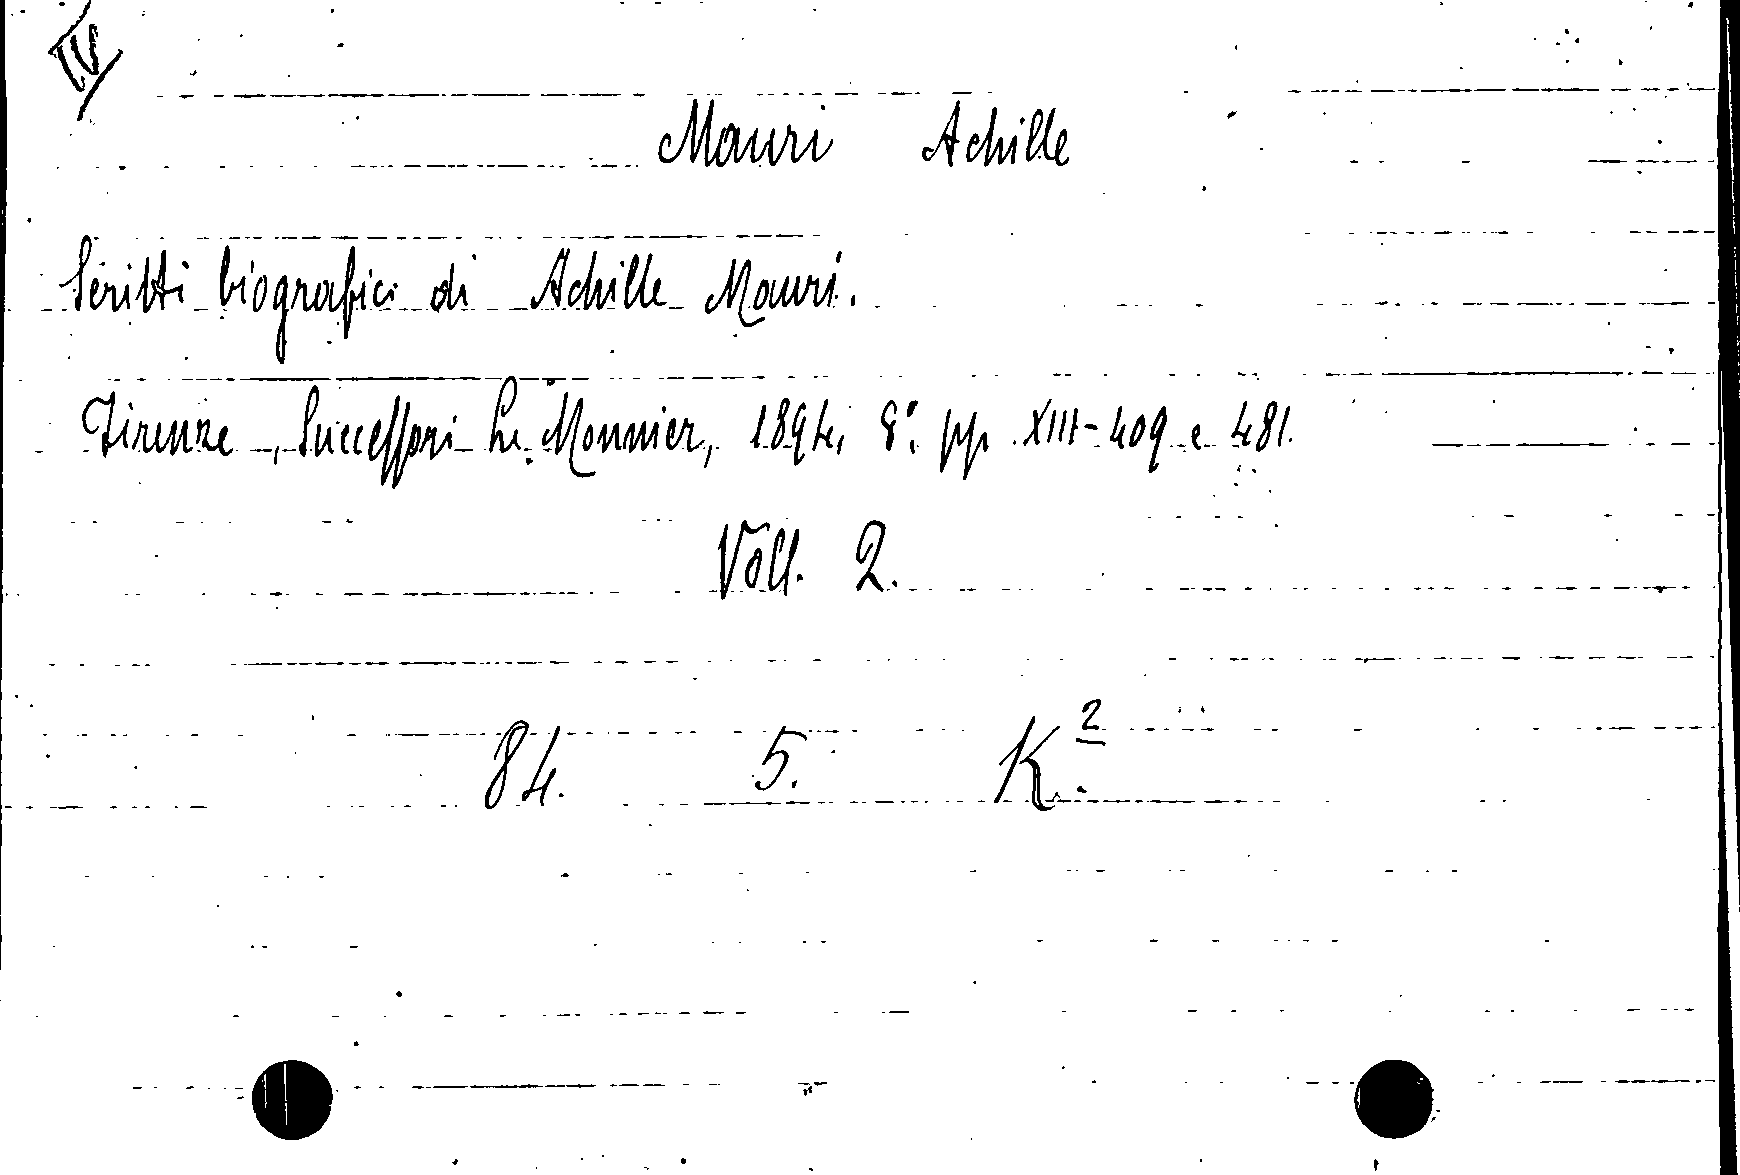 IV
Mauri Achille
Scritti biografici di Achille Mauri.
Firenze, Successori Le Monnier, 1894, 8°. pp. XIII-409 e 481.
Voll. 2.
84. 5. K.2